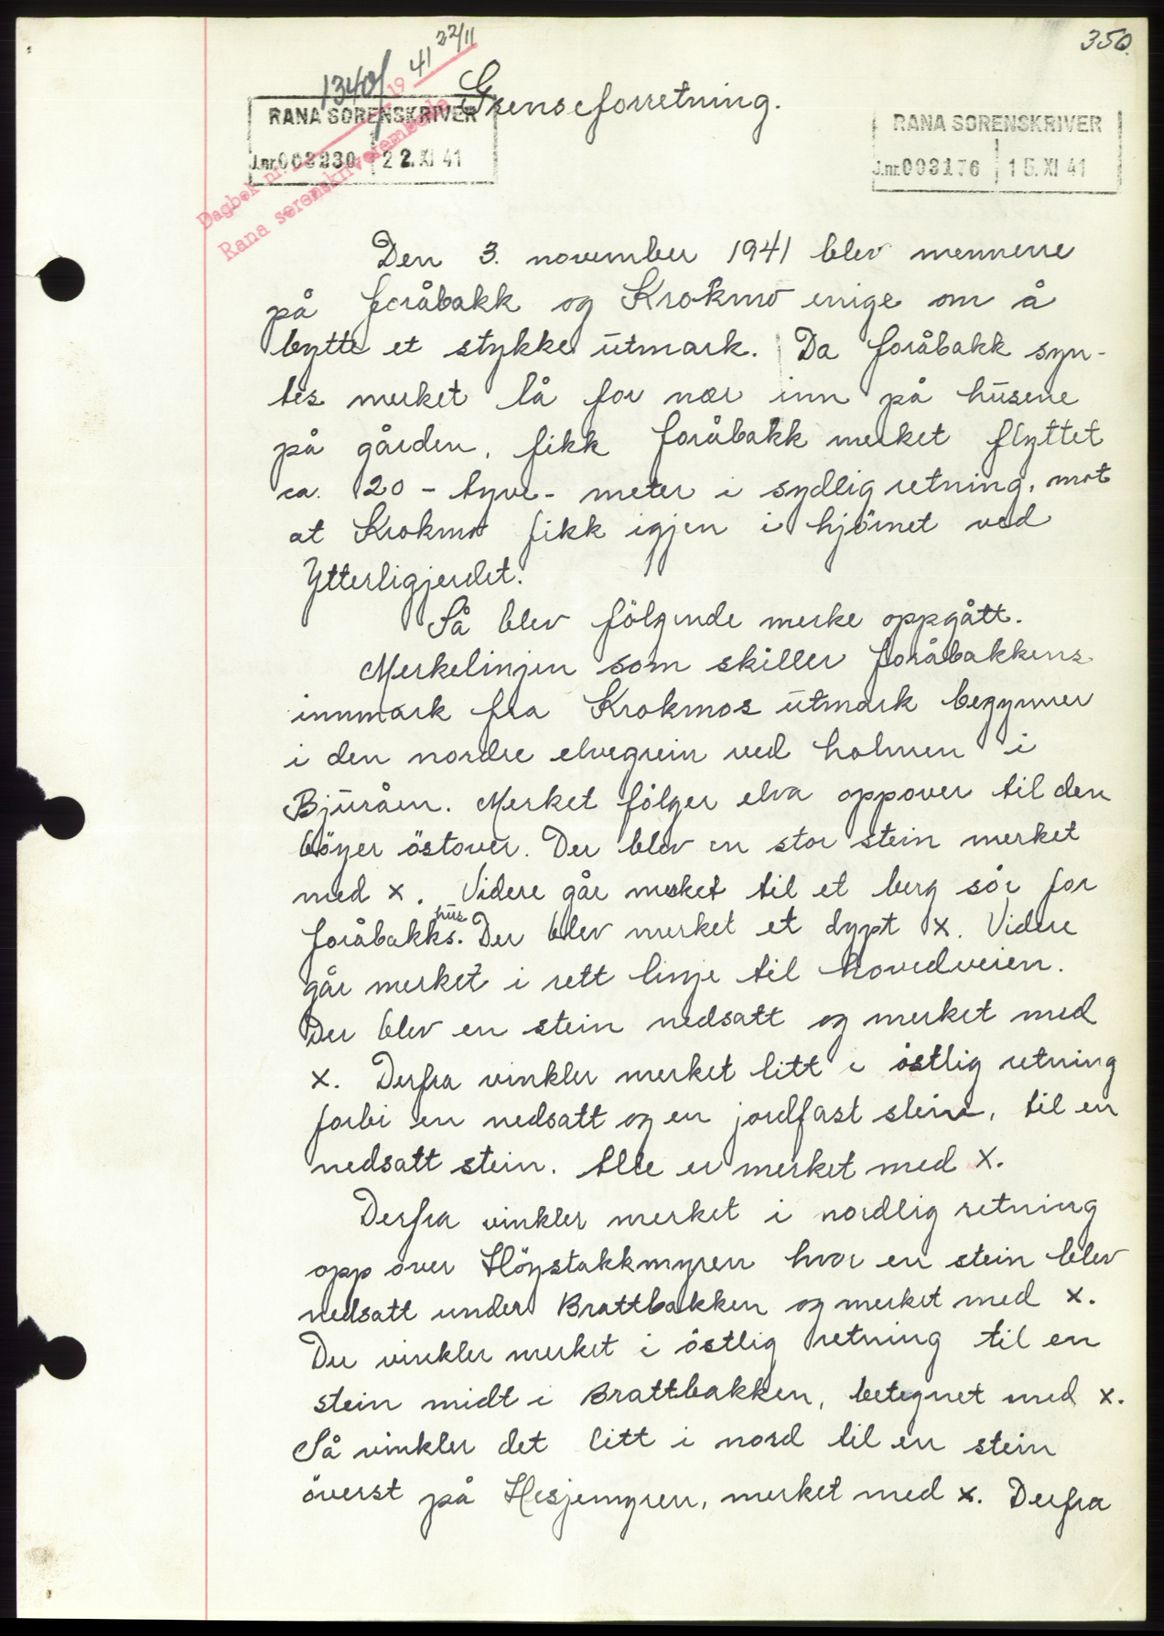 350.
1340/ 1941 22/11
Dagbok nr.
Rana sorenskriverembede
RANA SORENSKRIVER
J.nr. 003230 22. XI 41
RANA SORENSKRIVER
J.nr. 003176 15. XI 41
Grenseforretning.
Den 3. november 1941 blev mennene
på foråbakk og Krokmo enige om å
bytte et stykke utmark. Da foråbakk syn-
tes merket lå for nær inn på husene
på gården, fikk foråbakk merket flyttet
ca. 20 - tyve - meter i sydlig retning, mot
at Krokmo fikk igjen i hjörnet ved
Ytterligjerdet.
Så blev fölgende merke oppgått.
Merkelinjen som skiller foråbakkens
innmark fra Krokmos utmark begynner
i den nordre elvegrein ved holmen i
Bjuråen. Merket fölger elva oppover til den
böyer östover. Der blev en stor stein merket
med x. Videre går merket til et berg sör for
foråbakks hus. Der blev merket et dypt x. Videre
går merket i rett linje til hovedveien.
Der blev en stein nedsatt og merket med
x. Derfra vinkler merket litt i östlig retning
forbi en nedsatt og en jordfast stein, til en
nedsatt stein. Alle er merket med X.
Derfra vinkler merket i nordlig retning
opp over Höystakkmyren hvor en stein blev
nedsatt under Brattbakken og merket med x.
Der vinkler merket i östlig retning til en
stein midt i Brattbakken, betegnet med x.
Så vinkler det litt i nord til en stein
överst på Hesjemyren, merket med x. Derfra